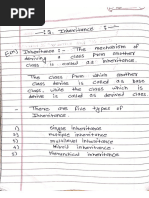 15. Inheritance :-
Inheritance :- The mechanism of
deriving a class from another
class is called as inheritance.
The class from which another
class derive is called as base
class, while the class which is
derive is called as derived class.
- There are five types of
Inheritance
1) Single inheritance
2) multiple inheritance
3) multilevel inheritance
4) Hybrid inheritance
5) Hierarchical inheritance